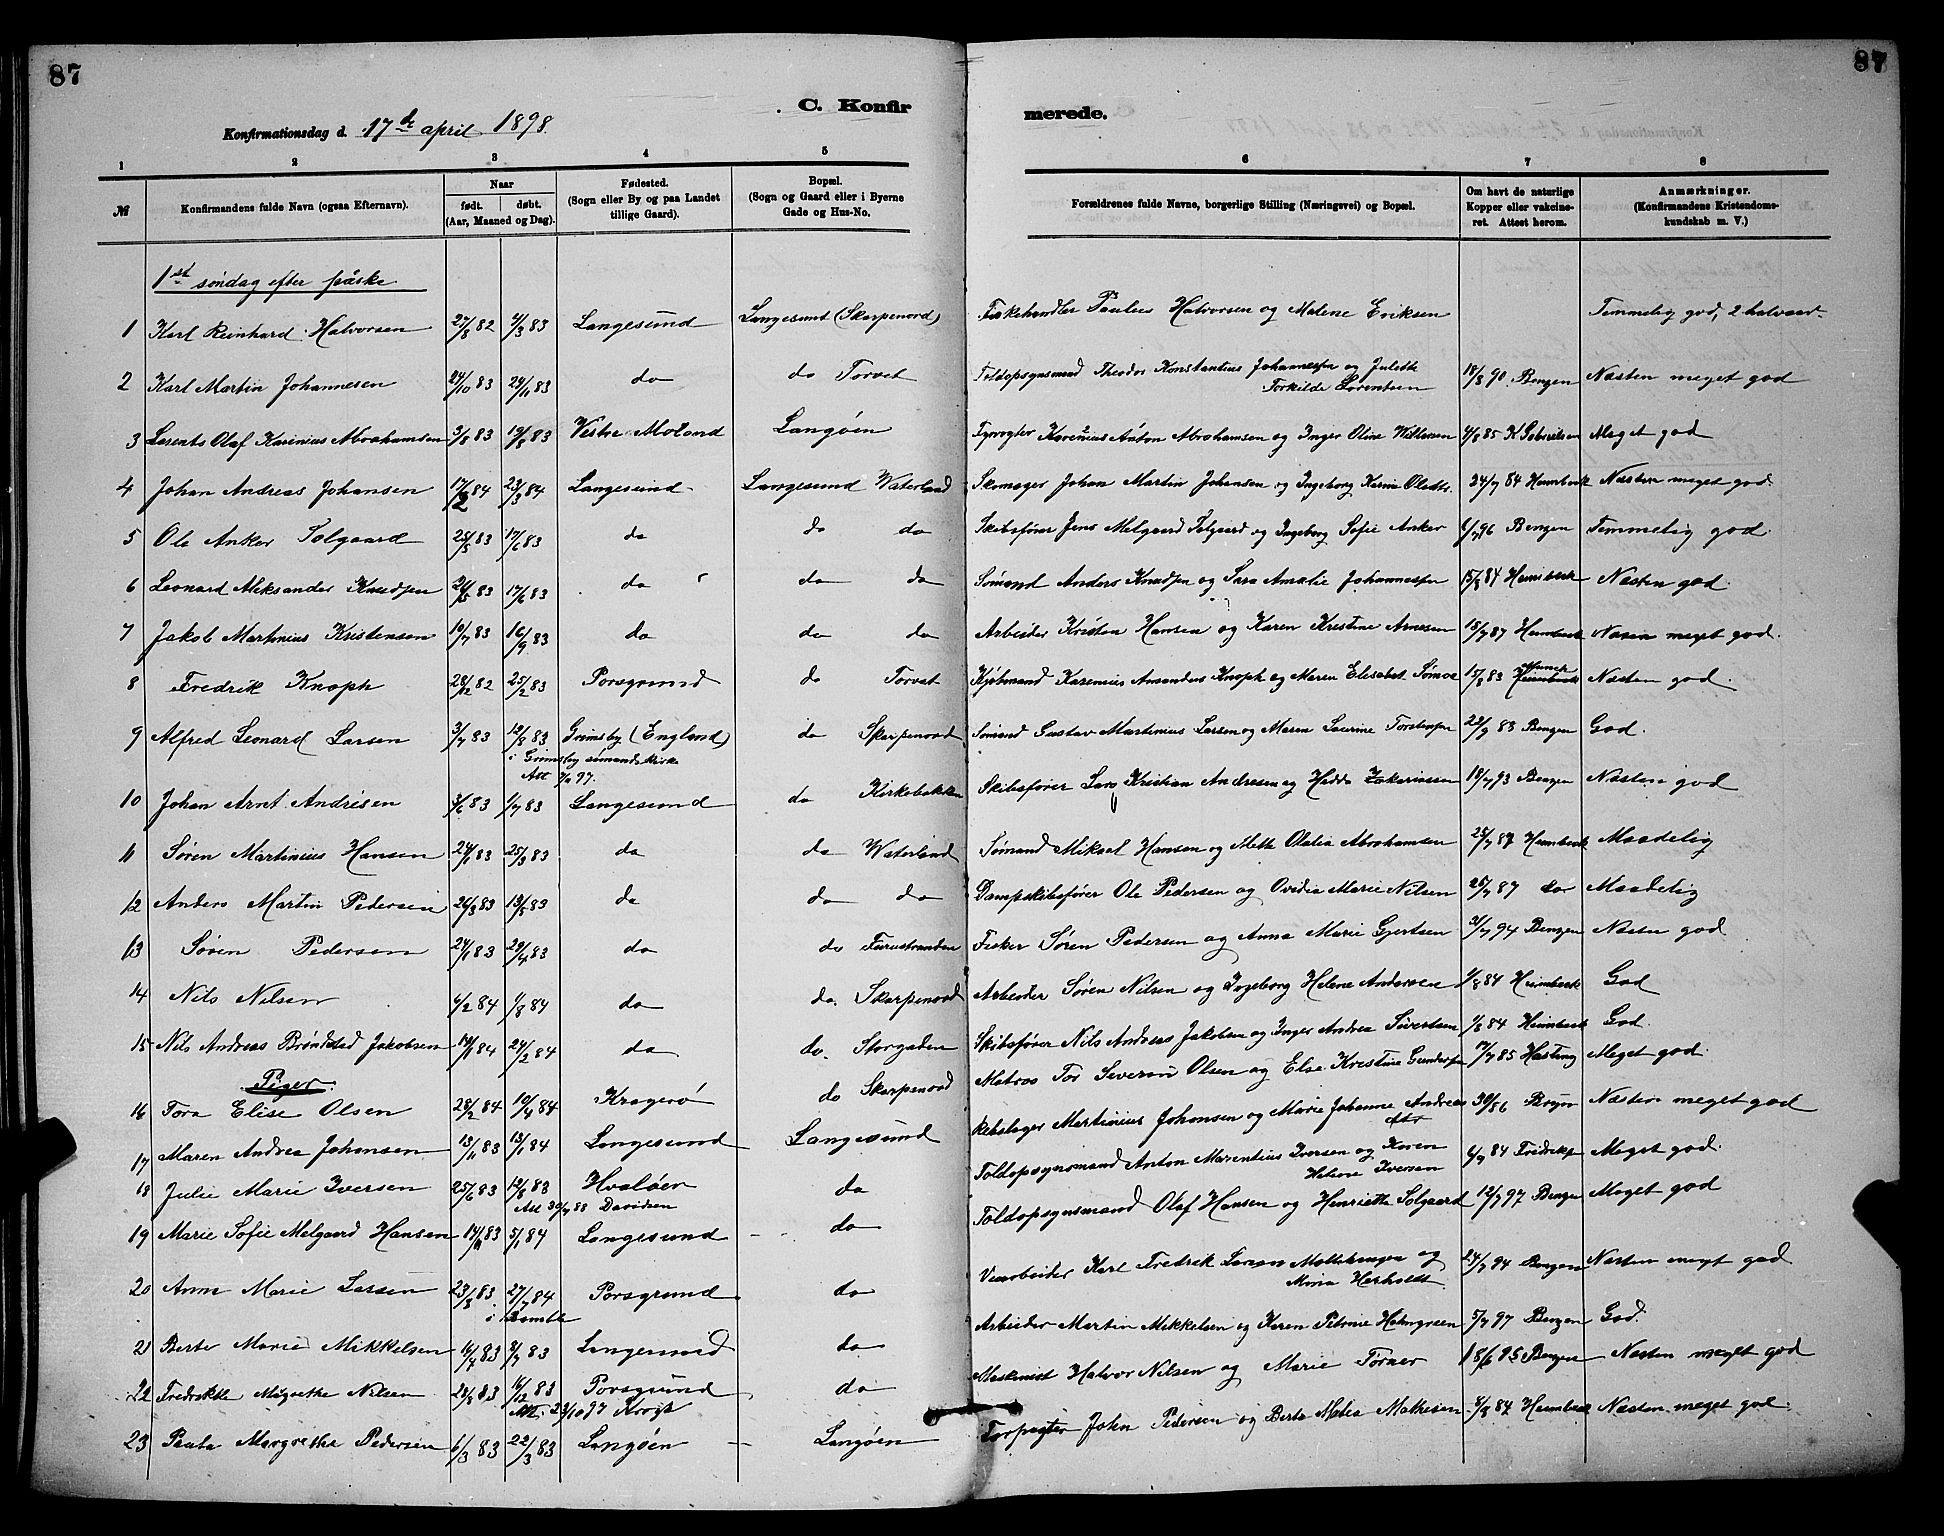 87
87
C. Konfir
merede.
Konfirmationsdag d. 17de april 1898.
1 2 3 4 5 6 7 8
№
Konfirmandens fulde Navn (ogsaa Efternavn).
Naar
født. døbt.
(Aar, Maaned og Dag).
Fødested.
(Sogn eller By og paa Landet
tillige Gaard).
Bopæl.
(Sogn og Gaard eller i Byerne
Gade og Hus-No.
Forældrenes fulde Navne, borgerlige Stilling (Næringsvei) og Bopæl.
Om havt de naturlige
Kopper eller vakcine-
ret. Attest herom.
Anmærkninger.
(Konfirmandens Kristendoms-
kundskab m. V.)
1st søndag efter påske
1 Karl Reinhard Halvorsen 27/8 82 4/3 83 Langesund Langesund (Skarpenord) Fiskehandler Paulus Halvorsen og Malene Eriksen Temmelig god, 2 halvaar
2 Karl Martin Johannesen 24/10 83 29/11 83 do do Torvet Toldopsynsmand Theodor Konstantius Johannessen og Julette
Torkilde Lorentsen 18/8 90 Benzen Næsten meget god
3 Lorents Olaf Karinius Abrahamsen 3/8 83 19/8 83 Vestre Moland Langøen Fyrvogter Karenius Anton Abrahamsen og Inger Oline Willersen 4/8 85 Meget god
4 Johan Andreas Johansen 17/2 84 23/3 84 Langesund Langesund Waterland Skomager Johan Martin Johansen og Ingeborg Karine Oledtr. 24/7 84 Heimbeck Næsten meget god
5 Ole Anker Solgaard 25/5 83 17/6 83 do do do Skibsfører Jens Melgaard Solgaard og Ingeborg Sofie Anker 6/7 96 Benzen Temmelig god
6 Leonard Aleksander Knudsen 21/5 83 17/6 83 do do do Sømand Anders Knudsen og Sara Amalie Johannessen 15/8 84 Heimbeck Næsten god
7 Jakob Martinius Kristensen 10/7 83 16/9 83 do do do Arbeider Kristen Hansen og Karen Kristine Arnesen 18/7 87 Heimbeck Næsen meget god.
8 Fredrik Knoph 28/12 82 25/2 83 Porsgrund do Torvet Kjøbmand Karenius Amandus Knoph og Maren Elisabet Simon 15/8 83 Munch Næsten god.
9 Alfred Leonard Larsen 3/7 83 12/8 83 Grimsby (England) do Skarpenord Sømand Gustav Martinius Larsen og Maren Laurine Torstensen 22/9 83 Benzen God.
i Grimsby sømandskirke
10 Johan Arnt Andrisen 3/6 83 1/7 83 Langesund do Kirkebakken Skibsfører Lars Kristian Andresen og Hedda Zakariassen 18/7 93 Benzen Næsten god
11 Søren Martinius Hansen 24/1 83 25/3 83 do do Waterland Sømand Mikael Hansen og Mette Olalia Abrahamsen 25/7 87 Heimbeck Maadelig
12 Anders Martin Pedersen 26/3 83 13/5 83 do do do Dampskibsfører Ole Pedersen og Ovidia Marie Nilsen 25/7 87 do Maadelig
13 Søren Pedersen 24/1 83 29/4 83 do do Furustranden Fisker Søren Pedersen og Anna Marie Gjertsen 31/7 94 Benzen Næsen god
14 Nils Nilsen 6/2 84 1/8 84 do do. Skarpenord Arbeider Søren Nilsen og Ingeborg Helene Andersen 1/8 84 Heimbeck God
15 Nils Andreas Brøndstad Jakobsen 14/1 84 24/2 84 do do. Storgaden Skibsfører Nils Andreas Jakobsen og Inger Andrea Sivertsen 1/8 84 Heimbeck God.
Piger.
16 Tora Elise Olsen 28/2 84 10/4 84 Kragerø do Skarpenord Matros Tor Severin Olsen og Else Kristine Gundersen 17/7 85 Hasting Meget god.
17 Maren Andrea Johansen 13/11 83 13/1 84 Langesund Langesund Martinius Johansen og Marie Johanne Andreas
dtr 30/86 Bryn Næsten meget god
18 Julie Marie Iversen 25/6 83 12/8 83 Hvaløer do Toldopsynsmand Anton Marentius Iversen og Karen
Helene Iversen 6/9 84 Fredriks Meget god.
Att 30/7 88 Davidsen
19 Marie Sofie Melgaard Hansen 14/11 83 5/1 84 Langesund do Toldopsynsmand Olaf Hansen og Henriette Solgaard 12/7 97 Benzen Meget god
20 Anna Marie Larsen 23/3 83 27/7 84 Porsgrund do Karl Fredrik Larsen Moltehaugen og
Mina Herholdt 24/7 94 Benzen Næsten meget god
i Bamble
21 Berte Marie Mikkelsen 16/4 83 8/7 83 Langesund do Arbeider Martin Mikkelsen og Karen Petrine Holmgreen 5/7 97 Benzen God.
22 Fredrikke Margrethe Nilsen 28/8 83 16/12 83 Porsgrund do Maskinist Halvor Nilsen og Marie Torner 18/6 95 Benzen Næsten meget god
Att. 23/10 97 Krogh
23 Paula Margrethe Pedersen 6/3 83 22/3 83 Langøen Langøen Forpagter John Pedersen og Berte Malia Mathisen 4/8 84 Heimbeck Næsten meget god.